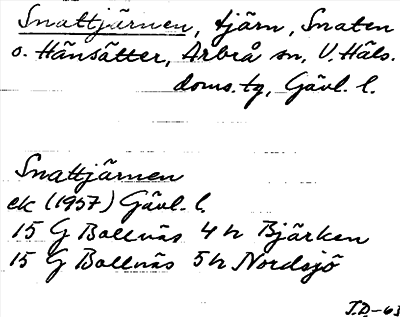 Snattjärnen, tjärn, Snaten
o. Hänsätter, Arbrå sn, V. Häls.
doms. tg, Gävl. l.
Snattjärnen
ek (1957) Gävl. l.
15 G Bollnäs 4 h Bjärken
15 G Bollnäs 5 h Nordsjö
J.D-63